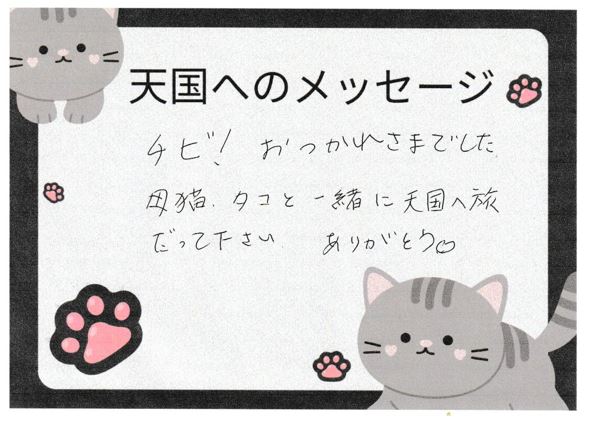 天国へのメッセージ
チビ! おつかれさまでした
母猫、タコと一緒に天国へ旅
だって下さい ありがとう♡